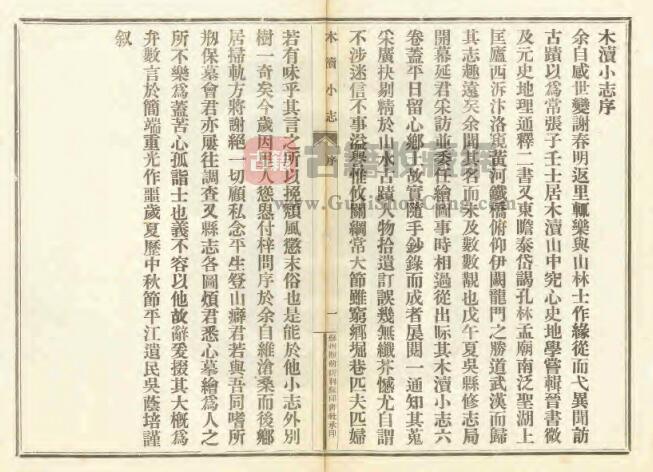 木瀆小志序
余自感世變謝春明返里輒樂與山林士作緣從而弋異聞訪
古蹟以爲常張子壬士居木瀆山中究心史地學嘗輯晉書徵
及元史地理通釋二書又東瞻泰岱謁孔林孟廟南泛聖湖上
匡廬西泝汴洛窺黃河鐵橋俯仰伊闕龍門之勝道武漢而歸
其志趣遠矣余聞其名而未及數數覯也戊午夏吳縣修志局
開幕延君采訪並委任繪圖事時相過從出眎其木瀆小志六
卷蓋平日留心鄉土故實隨手鈔錄而成者展閱一通知其蒐
采廣抉剔精於山水古蹟人物拾遺訂誤幾無纖芥憾尤自謂
不涉迷信不事溢譽惟攸關綱常大節雖窮鄉堀巷匹夫匹婦
木瀆小志
序
一
若有味乎其言之所以挽頹風懲末俗也是能於他小志外別
樹一奇矣今歲因里人慫恿付梓問序於余自維滄桑而後鄉
居掃軌方將謝絕一切顧私念平生登山癖君若與吾同嗜所
剏保墓會君亦屢往調查又縣志各圖煩君悉心摹繪爲人之
所不樂爲蓋苦心孤詣士也義不容以他故辭爰掇其大概爲
弁數言於簡端重光作噩歲夏歷中秋節平江遺民吳蔭培謹
叙
古籍
古籍收藏網
www.GuJiShouCang.com